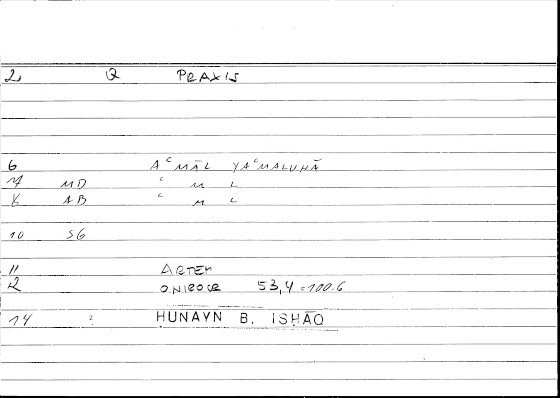 2. Q PRAXIS
6 AʿMĀL YAʿMALUHĀ
7 MD ʿ M L
8 AB ʿ M L
10 SG
11 ARTEM
12 ONIROCR 53,4=100.6
14 ? HUNAYN B. ISHĀQ